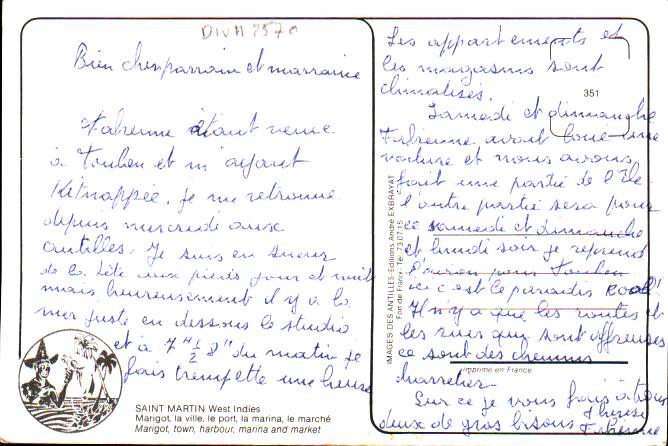 DIVH 2570
Bien chers parrain et marraine
Fabienne étant venue
à Toulon et m'ayant
Kitnappée, je me retrouve
depuis mercredi aux
antilles. Je suis en sueur
de la tête aux pieds jour et nuit
mais heureusement il y a la
mer juste en dessous le studio
et à 7 H 1/2 8" du matin je
fais trempette une heure
SAINT MARTIN West Indies
Marigot, la ville, le port, la marina, le marché
Marigot, town, harbour, marina and market
IMAGES DES ANTILLES-Editions André EXBRAYAT
Fort de France - Tél. 73.07.15
351
Les appartements et
les magasins sont
climatisés.
Samedi et dimanche
Fabienne avait loué une
voiture et nous avons
fait une partie de l'île
l'autre partie sera pour
ce samedi et dimanche
et lundi soir je reprend
l'avion pour Toulon
ici c'est le paradis
Il n'y a que les routes et
les rues qui sont affreuses
ce sont des chemins
Imprimé en France
charretier.
Sur ce je vous fais à tous
deux de gros bisous Thérèse
Fabienne